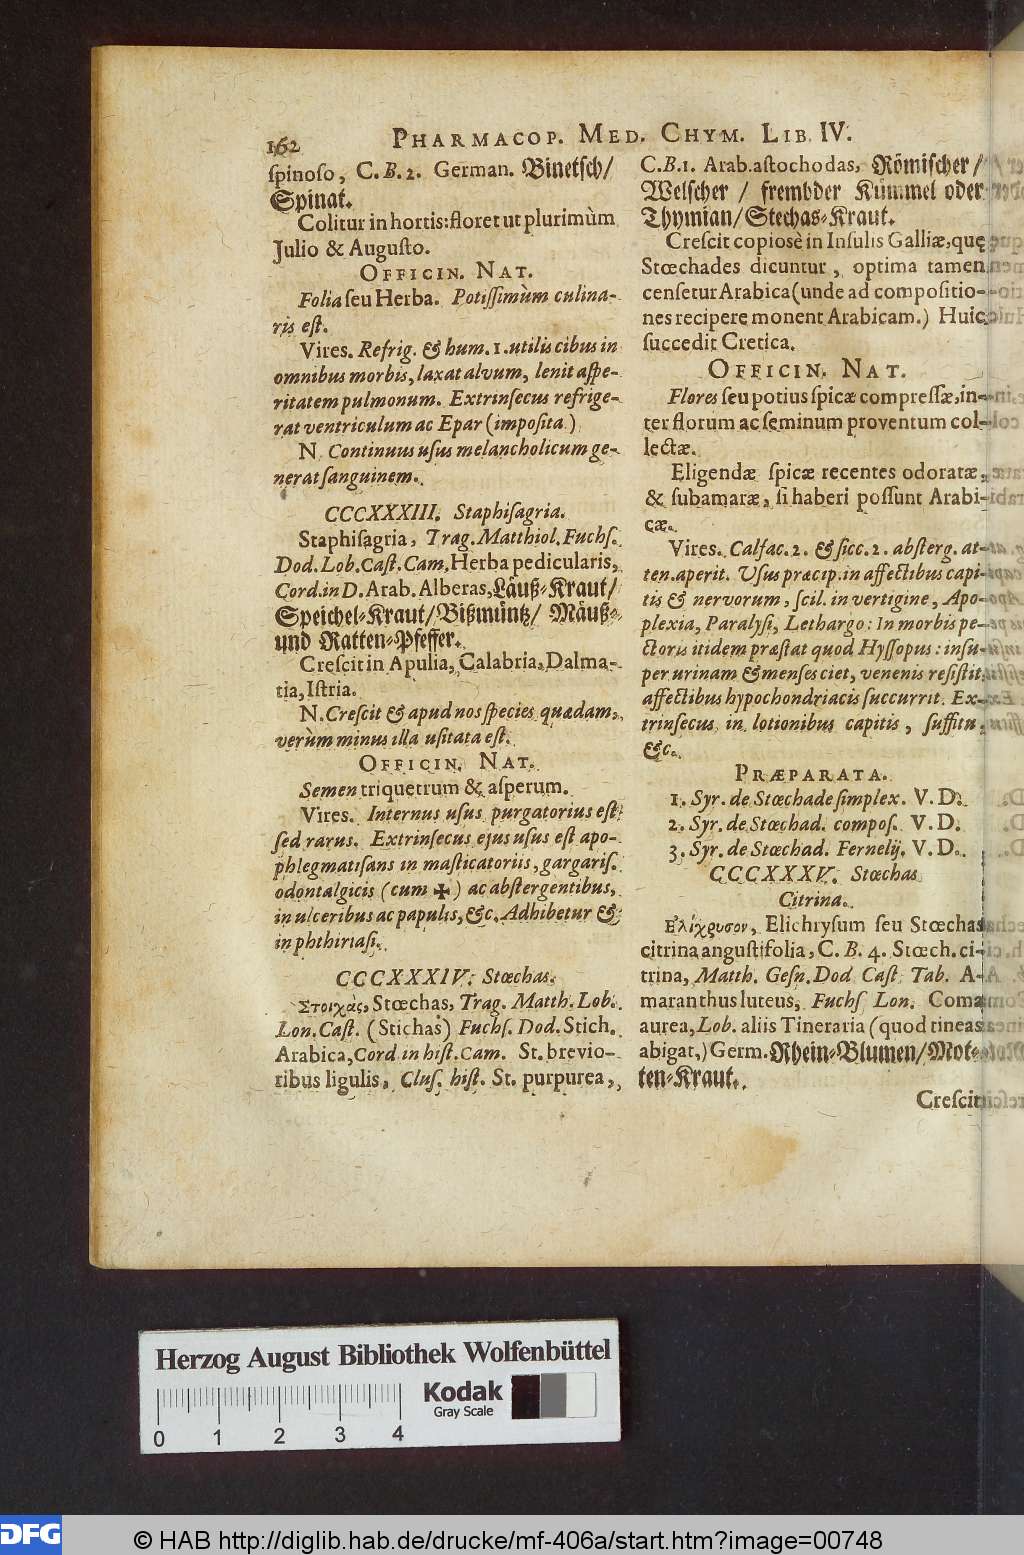 162 PHARMACOP. MED. CHYM. LIB. IV.
ſpinoſo, C. B. 2. German. Binetſch/
Spinat.
Colitur in hortis: floret ut plurimùm
Julio & Auguſto.
OFFICIN. NAT.
Folia ſeu Herba. Potiſſimùm culina-
ris eſt.
Vires. Refrig. & hum. 1. utilis cibus in
omnibus morbis, laxat alvum, lenit aſpe-
ritatem pulmonum. Extrinſecus refrige-
rat ventriculum ac Epar (impoſita)
N. Continuus uſus melancholicum ge-
nerat ſanguinem.
CCCXXXIII. Staphiſagria.
Staphiſagria, Trag. Matthiol. Fuchſ.
Dod. Lob. Caſt. Cam, Herba pedicularis,
Cord. in D. Arab. Alberas, Läuß-Kraut/
Speichel-Kraut/ Bißmüntz/ Mäuß-
und Ratten-Pfeffer.
Creſcit in Apulia, Calabria, Dalma-
tia, Iſtria.
N. Creſcit & apud nos ſpecies quædam,
verùm minus illa uſitata eſt.
OFFICIN. NAT.
Semen triquetrum & aſperum.
Vires. Internus uſus purgatorius eſt
ſed rarus. Extrinſecus ejus uſus eſt apo-
phlegmatiſans in maſticatoriis, gargariſ.
odontalgicis (cum ✠) ac abſtergentibus,
in ulceribus ac papulis, &c. Adhibetur &
in phthiriaſi.
CCCXXXIV. Stœchas.
Στοιχὰς, Stœchas, Trag. Matth. Lob.
Lon. Caſt. (Stichas) Fuchſ. Dod. Stich.
Arabica, Cord in hiſt. Cam. St. brevio-
ribus ligulis, Cluſ. hiſt. St. purpurea,
C. B. 1. Arab. aſtochodas, Römiſcher/
Welſcher / frembder Kümmel oder
Thymian/ Stechas-Kraut.
Creſcit copiosè in Inſulis Galliæ, quę
Stœchades dicuntur, optima tamen
cenſetur Arabica (unde ad compoſitio-
nes recipere monent Arabicam.) Huic
ſuccedit Cretica.
OFFICIN. NAT.
Flores ſeu potius ſpicæ compreſſæ, in-
ter florum ac ſeminum proventum col-
lectæ.
Eligendæ ſpicæ recentes odoratæ,
& ſubamaræ, ſi haberi poſſunt Arabi-
cæ.
Vires. Calfac. 2. & ſicc. 2. abſterg. at-
ten. aperit. Uſus præcip. in affectibus capi-
tis & nervorum, ſcil. in vertigine, Apo-
plexia, Paralyſi, Lethargo: In morbis pe-
ctoris itidem præſtat quod Hyſſopus: inſu-
per urinam & menſes ciet, venenis reſiſtit,
affectibus hypochondriacis ſuccurrit. Ex-
trinſecus in lotionibus capitis, ſuffitu,
&c.
PRÆPARATA.
1. Syr. de Stœchade ſimplex. V. D.
2. Syr. de Stœchad. compoſ. V. D.
3. Syr. de Stœchad. Fernelij. V. D.
CCCXXXV. Stœchas
Citrina.
Ελίχρυσον, Elichryſum ſeu Stœchas
citrina anguſtifolia, C. B. 4. Stœch. ci-
trina, Matth. Geſn. Dod Caſt Tab. A-
maranthus luteus, Fuchſ Lon. Coma
aurea, Lob. aliis Tineraria (quod tineas
abigat,) Germ. Rhein-Blumen/ Mot-
ten-Kraut.
Creſcit
Herzog August Bibliothek Wolfenbüttel
Kodak
Gray Scale
0 1 2 3 4
DFG © HAB http://diglib.hab.de/drucke/mf-406a/start.htm?image=00748